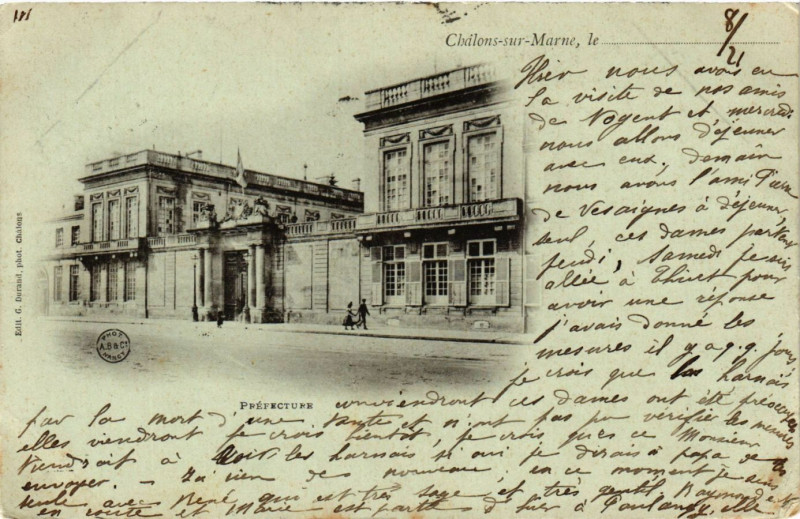 Châlons-sur-Marne, le
8/21
Hier nous avons eu
la visite de nos amis
de Nogent et mercredi
nous allons déjeuner
avec eux. Demain
nous avons l'ami
de Vesaignes à déjeuner,
seul, ces dames partent
jeudi, Samedi je suis
allée à Thivet pour
avoir une réponse
j'avais donné les
mesures il y a q.q. jours
je crois que les harnais
PRÉFECTURE
conviendront ces dames ont été
par la mort d'une tante et n'ont pas pu vérifier les mesures
elles viendront je crois bientôt, je crois que ce Monsieur
tiendrait à les harnais si oui je dirais à papa de les
envoyer. - J'ai rien de nouveau, en ce moment je suis
seule avec René qui est très sage et très gentil, Raymond est
en route et Marie est partie d'hier à Poulangy, elle
Edit. G. Durand, phot. Chalons
PHOT.
A.B & Cº
NANCY